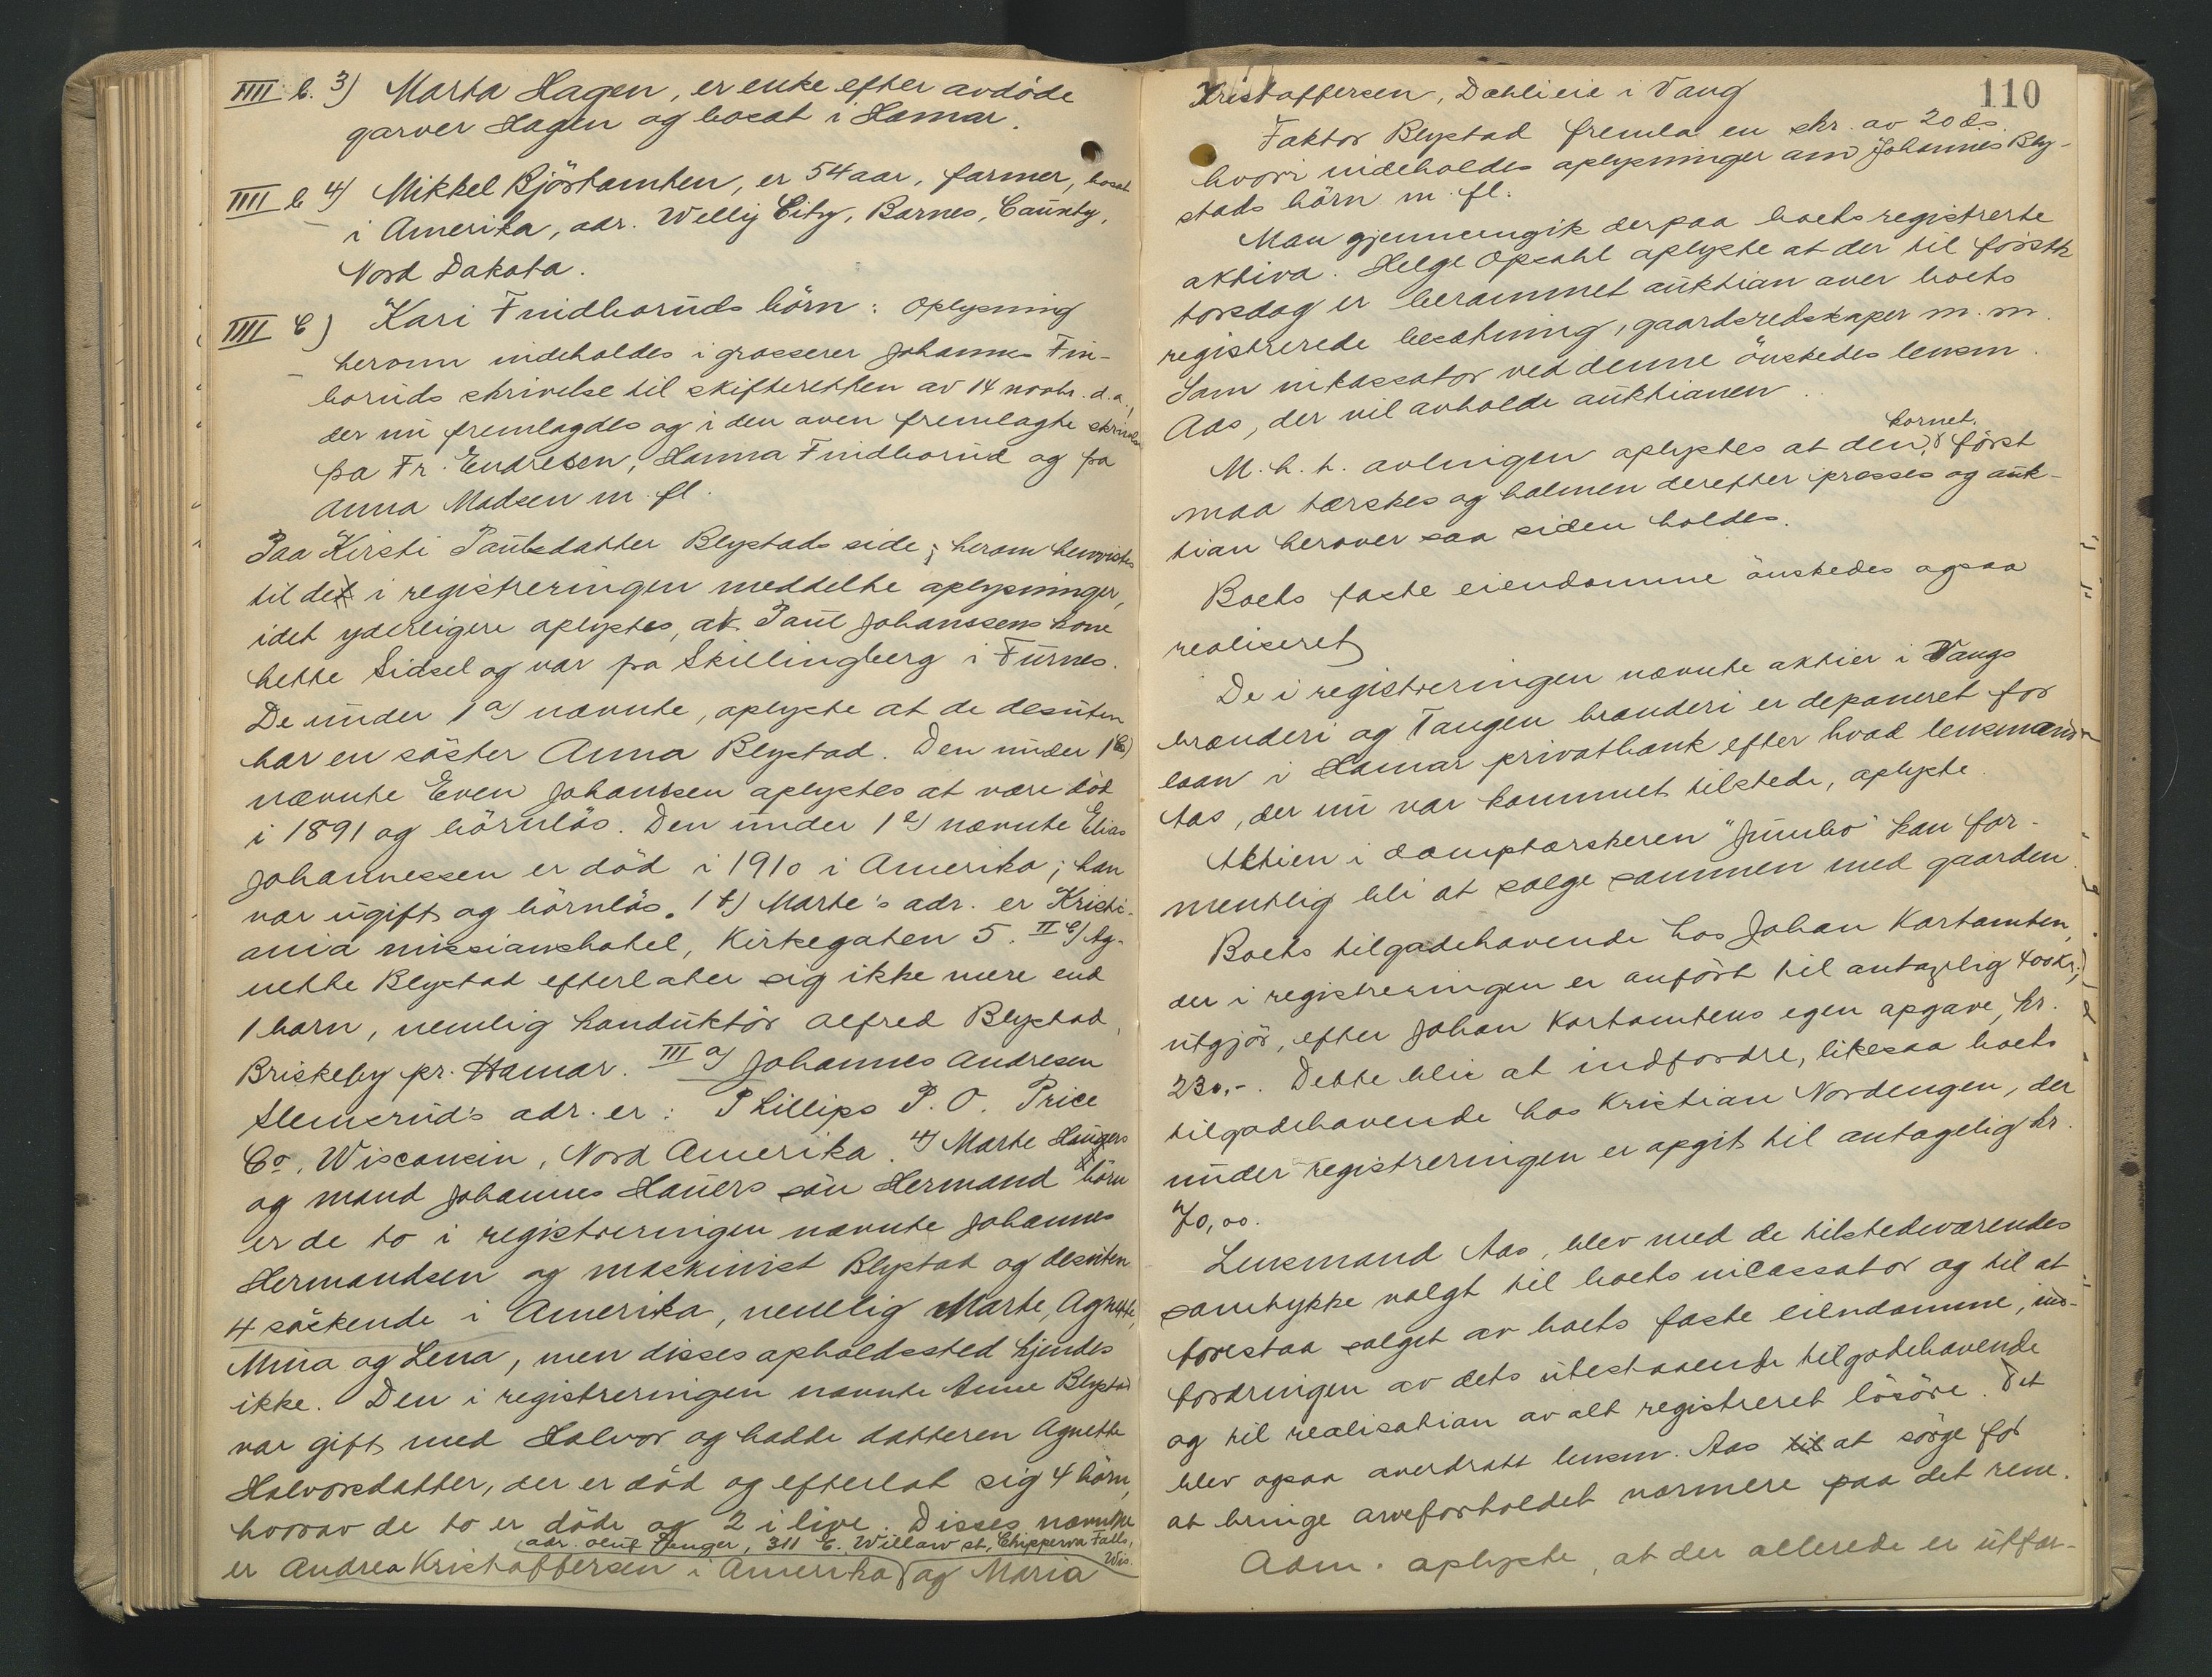 IIII b. 3) Marta Hagen, er enke efter avdöde
garver Hagen og bosat i Hamar.
IIII b 4) Mikkel Bjørtomten, er 54 aar, farmer, bosat
i Amerika, adr. Wellij City, Barnes, County,
Nord Dakota.
IIII c) Kari Findboruds börn: Oplysning
herom indeholdes i grosserer Johannes Fin-
boruds skrivelse til skifteretten av 14 novbr. d.a.,
der nu fremlagdes og i den oven fremlagte skrivelse
fra Fr. Endresen, Hanna Findborud og fra
Anna Madsen m. fl.
Paa Kirsti Paulsdatter Blystads side; herom henvistes
til det i registreringen meddelte oplysninger,
idet yderligere oplystes, at Paul Johanssens kone
hette Sidsel og var fra Skillingberg i Furnes.
De under 1 a) nævnte, oplyste at de desuten
har en söster Anna Blystad. Den under 1 c)
nævnte Even Johansen oplystes at være död
i 1891 og börnlös. Den under 1 e) nævnte Elias
Johannessen er död i 1910 i Amerika; han
var ugift og börnlös. 1 f) Marte's adr. er Kristi-
ania missionshotel, Kirkegaten 5. II e) Ag-
nethe Blystad efterlater sig ikke mere end
1 barn, nemlig konduktör Alfred Blystad,
Briskeby pr. Hamar. III a) Johannes Andresen
Slemsrud's adr. er: Phillips P.O. Price
Co, Wisconsin, Nord Amerika. 4) Marte Haugers
og mand Johannes Hauers sön Hermand börn
er de to i registreringen nævnte Johannes
Hermandsen og maskinist Blystad og desuten
4 söskende i Amerika, nemlig Marte, Agnethe,
Mina og Lena, men disses opholdssted kjendes
ikke. Den i registreringen nævnte Anne Blystad
var gift med Halvor og hadde datteren Agnethe
Halvorsdatter, der er död og efterlot sig 4 börn,
hvorav de to er döde og 2 i live. Disses navne
adr. Oluf Fenger, 311 E. Willow st, Chippewa Falls,
Wis.
er Andrea Kristoffersen i Amerika og Maria
110
Kristoffersen, Dæhlieie i Vang
Faktor Blystad fremla en skr. av 20 ds.
hvori indeholdes oplysninger om Johannes Bly-
stads börn m. fl.
Man gjennemgik derpaa boets registrerte
aktiva. Helge Opsahl oplyste at der til förstk
torsdag er berammet auktion over boets
registrerede besætning, gaardsredskaper m.m.
Som inkassator ved denne önskedes lensm.
Aas, der vil avholde auktionen.
kornet.
M.h.t. avlingen oplystes at den, först
maa tærskes og halmen derefter presses og auk-
tion herover saa siden holdes.
Boets faste eiendomme önskedes ogsaa
realiseret
De i registreringen nævnte aktier i Vangs
brænderi og Tangen brænderi er deponeret for
laan i Hamar privatbank efter hvad lensmand
Aas, der nu var kommet tilstede, oplyste.
Aktien i damptærskeren "Jumbo" kan for-
mentlig bli at sælge sammen med gaarden.
Boets tilgodehavende hos Johan Kortomten,
der i registreringen er anfört til antagelig 400 kr.,
utgjör, efter Johan Kortomtens egen opgave, kr.
230.-. Dette blir at indfordre, likesaa boets
tilgodehavende hos Kristian Nordengen, der
under registreringen er opgit til antagelig kr.
70,00.
Lensmand Aas, blev med de tilstedeværendes
samtykke valgt til boets incassator og til at
forestaa salget av boets faste eiendomme, ind-
fordringen av dets utestaaende tilgodehavende
og til realisation av alt registreret lösöre. Det
blev ogsaa overdratt lensm. Aas til at sörge for
at bringe arveforholdet nærmere paa det rene.
Adm. oplyste, at der allerede er utfær-